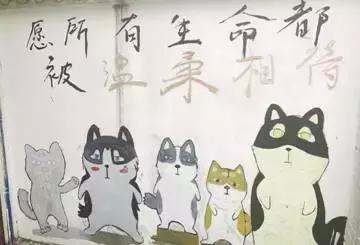 愿所有生命都
被温柔相待